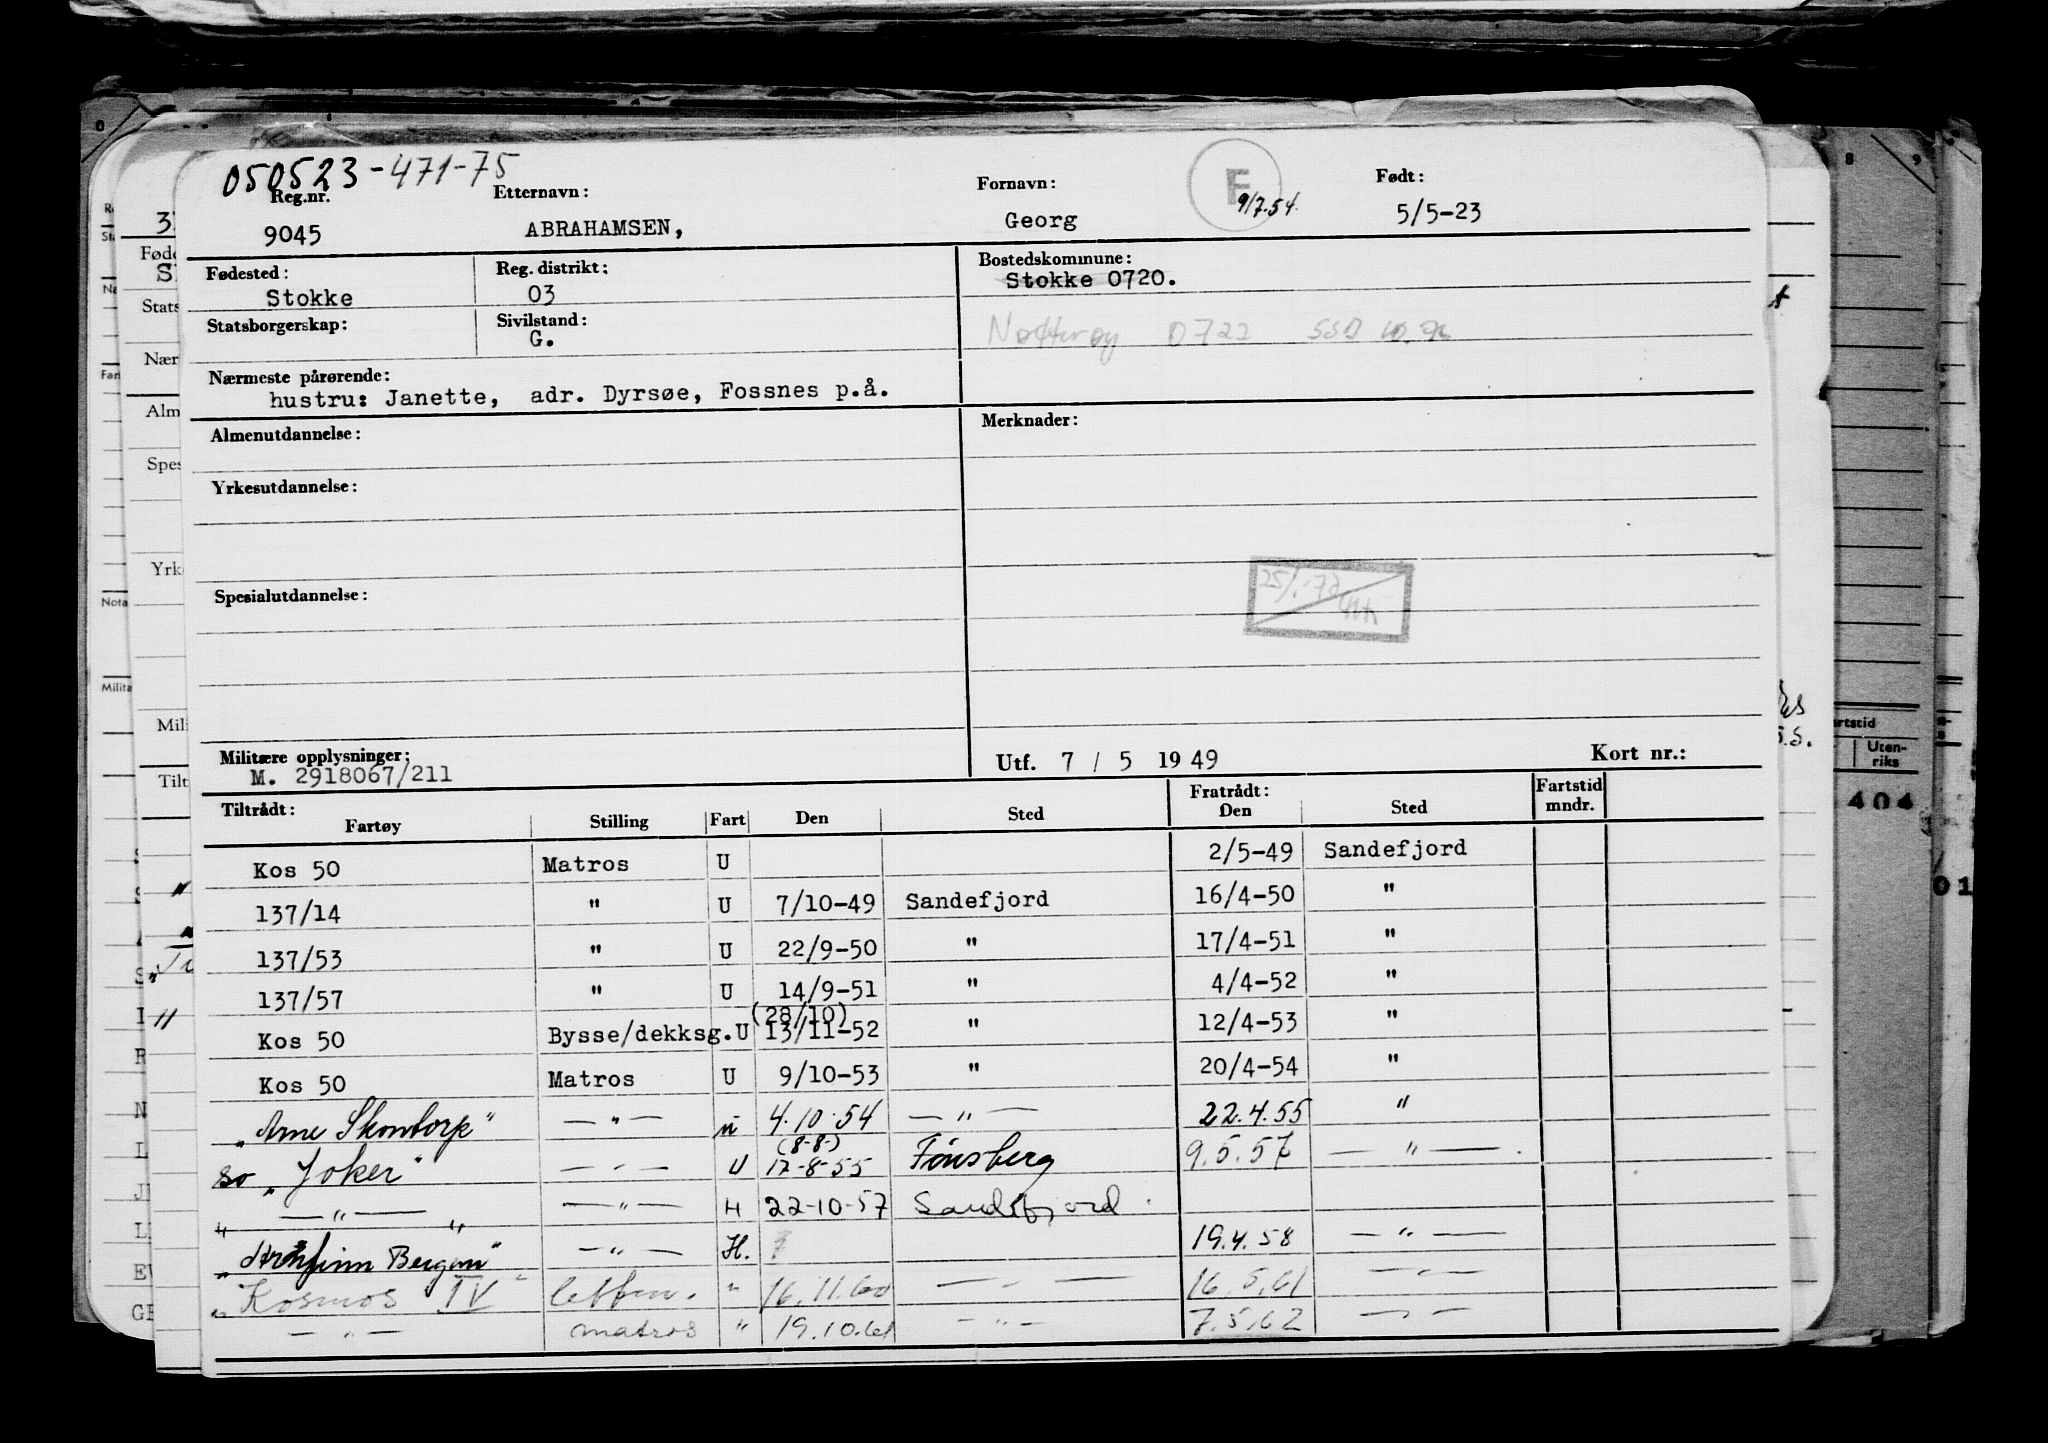 050523-471-75
Reg.nr. Etternavn: Fornavn: F 9/7.54. Født:
9045 ABRAHAMSEN, Georg 5/5-23
Fødested: Reg. distrikt: Bostedskommune:
Stokke 03 Stokke 0720.
Statsborgerskap: Sivilstand:
G. Nøtterøy 0722
Nærmeste pårørende:
hustru: Janette, adr. Dyrsøe, Fossnes p.å.
Almenutdannelse: Merknader:
Yrkesutdannelse:
Spesialutdannelse:
Militære opplysninger: Utf. 7 / 5 1949 Kort nr.:
M. 2918067/211
Tiltrådt: Fratrådt: Fartstid
Fartøy Stilling Fart Den Sted Den Sted mndr.
Kos 50 Matros U 2/5-49 Sandefjord
137/14 " U 7/10-49 Sandefjord 16/4-50 "
137/53 " U 22/9-50 " 17/4-51 "
137/57 " U 14/9-51 " 4/4-52 "
(28/10)
Kos 50 Bysse/dekksg. U 13/11-52 " 12/4-53 "
Kos 50 Matros U 9/10-53 " 20/4-54 "
"Arne Skontorp" — " — u 4.10.54 — " — 22.4.55 "
(8-8-)
so "Joker" — " — U 17-8-55 Tønsberg 9.5.57 — " —
" — " — " — " — H 22-10-57 Sandefjord
" Bergan" — " — H. 19.4.58 — " —
"Kosmos IV" " 16.11.60 — " — 16.5.61 — " —
— " — matros " 19.10.61 — " — 7.5.62 — " —